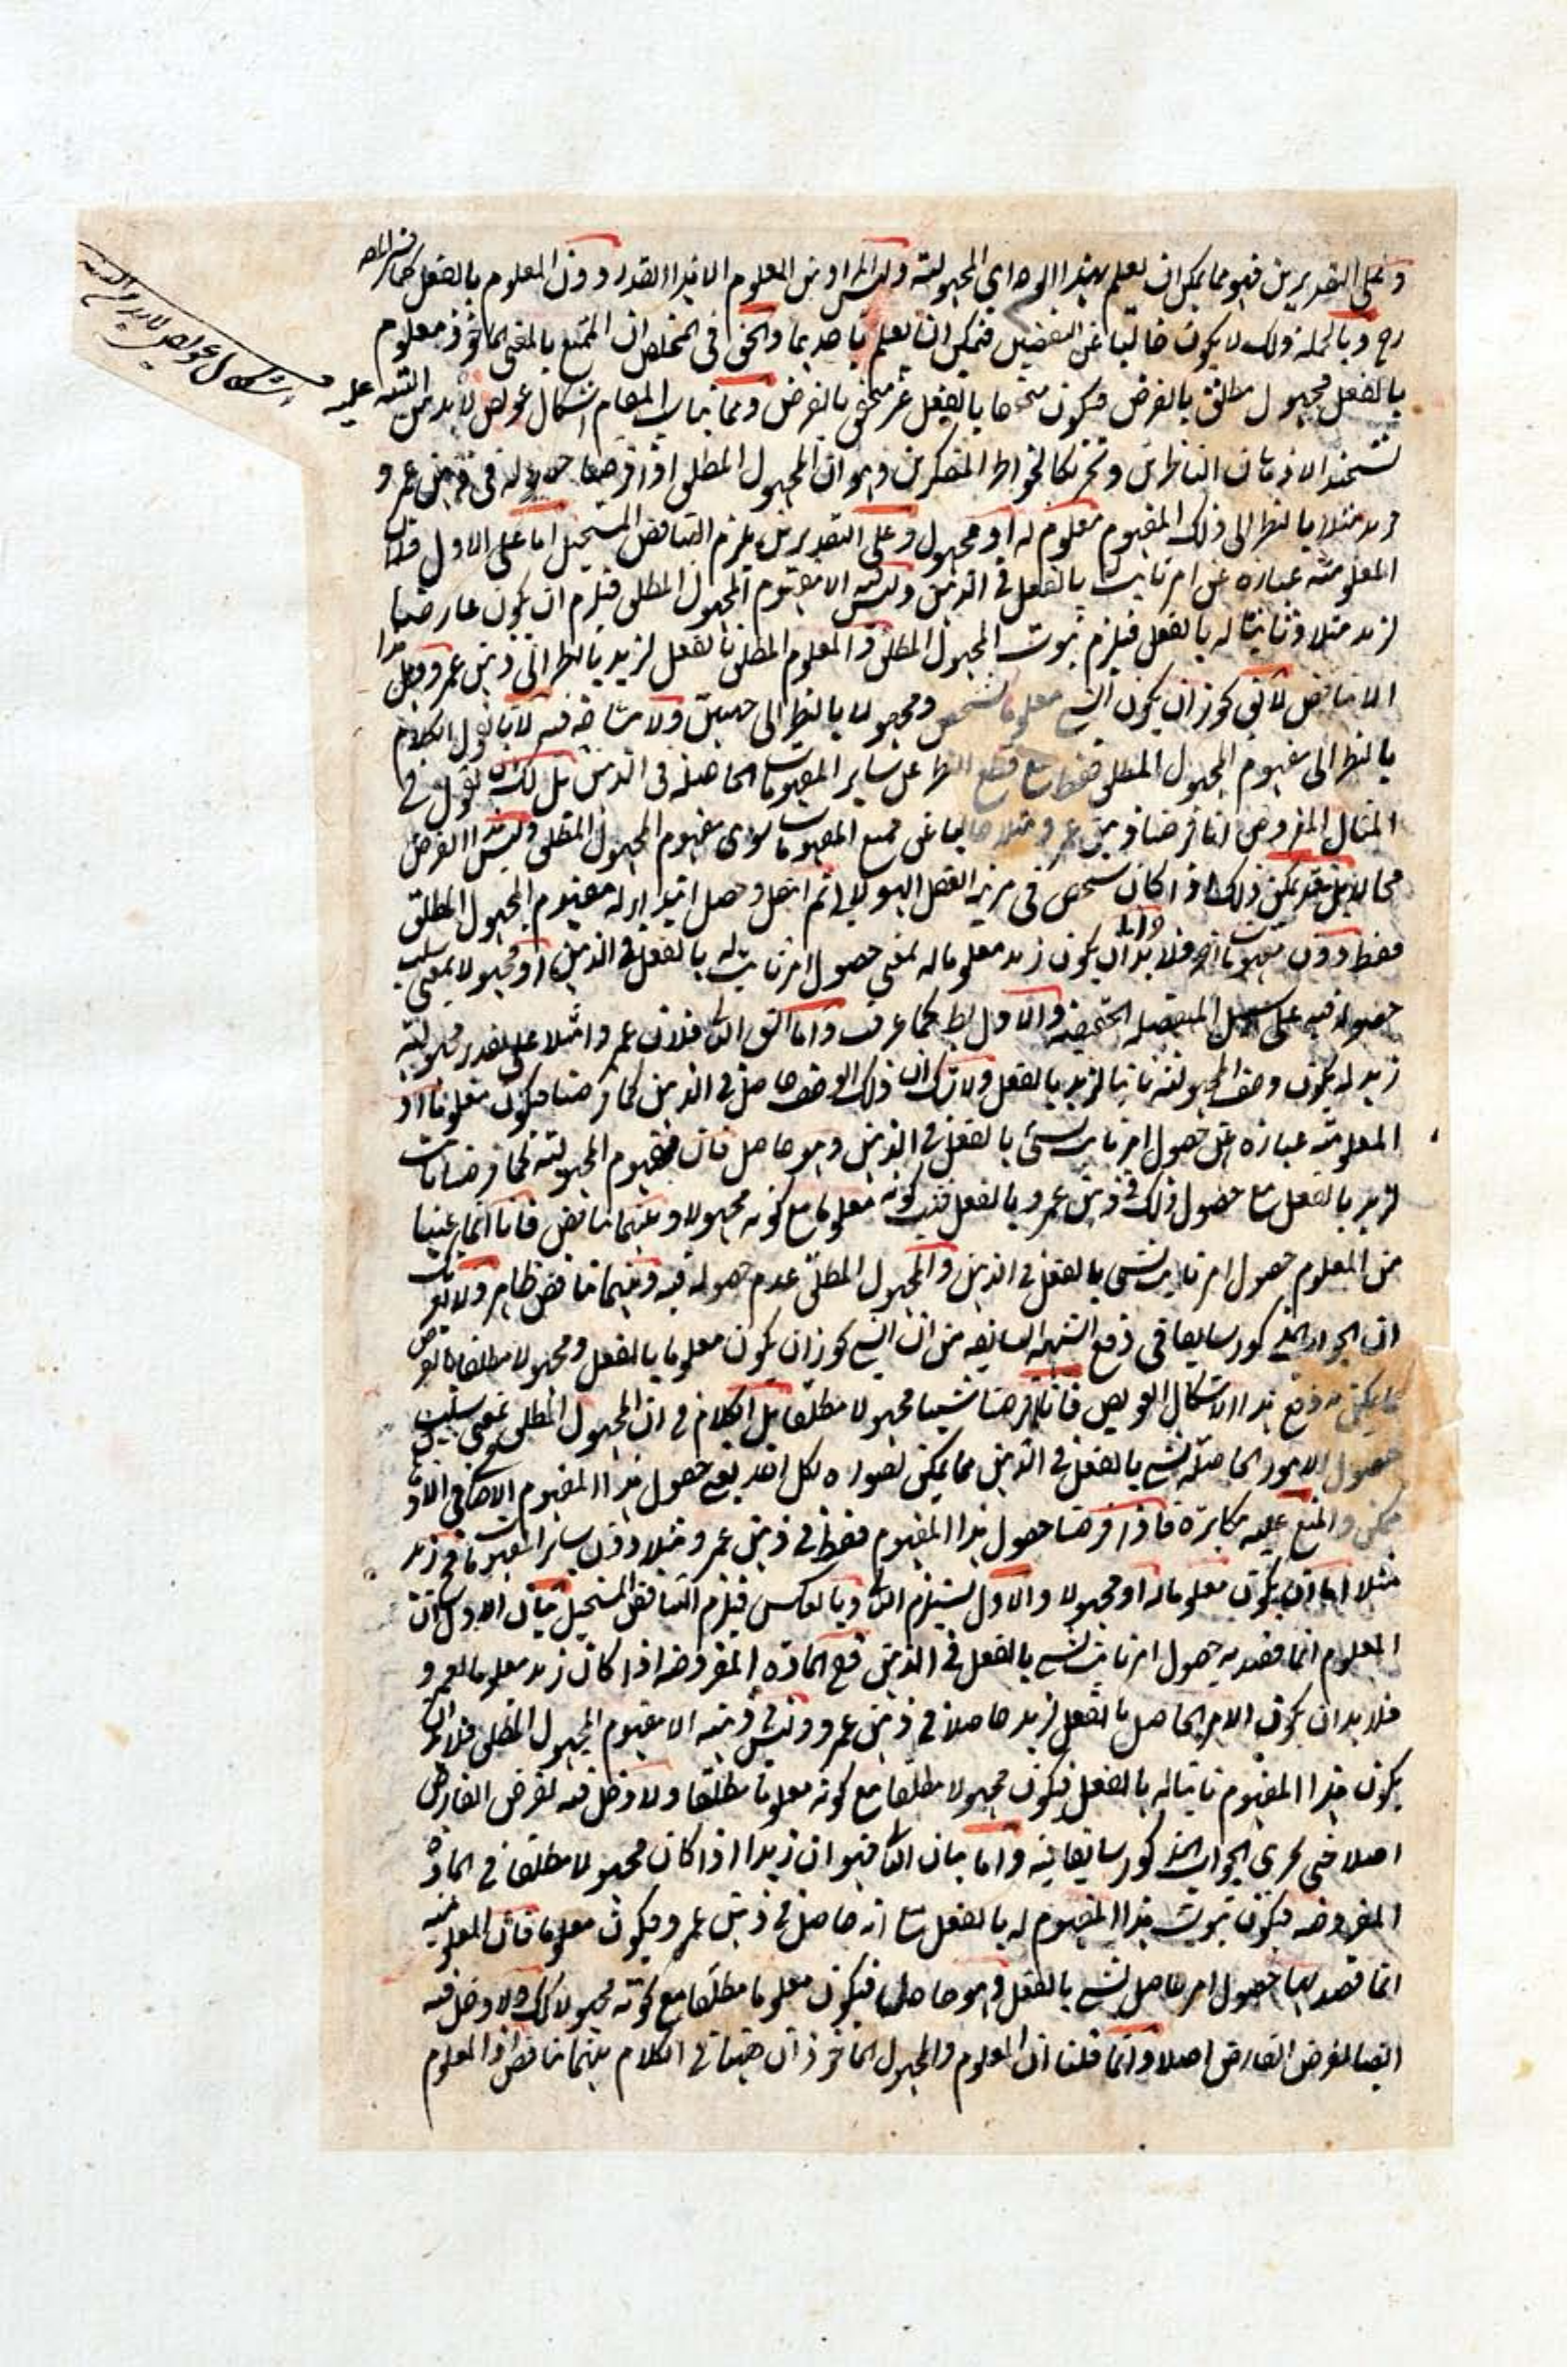 وعلى التقديرين فهو مما يمكن ان يعلم بهذا الوجه اي المجهولية وليس المراد من المعلوم الا هذا القدر دون المعلوم بالفعل كما
وبالجملة ذلك لا يكون خاليا عن النقيضين فيمكن ان يعلم باحدهما والحق في المخلص ان الممتنع بالمعنى الماخوذ معلوم
بالفعل مجهول مطلق بالفرض فيكون متحققا بالفعل غير متحقق بالفرض ومما يناسب المقام اشكال عويص لا بد من التنبيه عليه
تشحيذا لاذهان الناظرين وتحريكا لخواطر المتفكرين وهو ان المجهول المطلق اذا فرضنا حصوله في ذهن عمرو
فزيد مثلا بالنظر الى ذلك المفهوم معلوم له او مجهول وعلى التقديرين يلزم التناقض المستحيل اما على الاول فلان
المعلومية عبارة عن امر ثابت بالفعل في الذهن وليس الا مفهوم المجهول المطلق فيلزم ان يكون عارضا
لزيد مثلا وثابتا له بالفعل فيلزم ثبوت المجهول المطلق والمعلوم المطلق بالفعل لزيد بالنظر الى ذهن عمرو وهل هذا
الا تناقض لا يق يجوز ان يكون الشيء معلوما لشخص ومجهولا بالنظر الى جهتين ولا مناقضة فيه لانا نقول الكلام
بالنظر الى مفهوم المجهول المطلق فقط مع قطع النظر عن سائر المفهومات الحاصلة في الذهن بل لك ان تقول في
المثال المفروض انا فرضنا ذهن عمرو مثلا خاليا عن جميع المفهومات سوى مفهوم المجهول المطلق وليس هذا الفرض
محالا بل قد يمكن ذلك اذا كان شخص في مرتبة العقل الهيولاني ثم انتقل وحصل ابتداء له مفهوم المجهول المطلق
فقط دون مفهومات اخر فلا بد ان يكون زيد معلوما له بمعنى حصول امر ثابت له بالفعل في الذهن او مجهولا بمعنى سلب
حصوله فيه على سبيل المنفصلة الحقيقية والاول بط كما عرفت واما الشق الثاني فلان عمروا مثلا على تقدير مجهولية
زيد له يكون وصف المجهولية ثابتا لزيد بالفعل ولا شك ان ذلك الوصف حاصل في الذهن كما فرضنا فيكون معلوما اذ
المعلومية عبارة عن حصول امر ثابت لشيء بالفعل في الذهن وهو حاصل فان مفهوم المجهولية كما فرضنا ثابت
لزيد بالفعل مع حصول ذلك في ذهن عمرو بالفعل فثبت كونه معلوما مع كونه مجهولا وبينهما تناقض فانا انما عنينا
من المعلوم حصول امر ثابت لشيء بالفعل في الذهن والمجهول المطلق عدم حصوله فيه وبينهما تناقض ظاهر ولا يق
ان الجواب المذكور سابقا في دفع الشبهة السابقة من ان الشيء يجوز ان يكون معلوما بالفعل ومجهولا مطلقا بالفرض
مما يكفي في دفع هذا الاشكال العويص فانا ما فرضنا شيئا مجهولا مطلقا بل الكلام في ان المجهول المطلق بمعنى سلب
حصول الامور الحاصلة لشيء بالفعل في الذهن مما يمكن تصوره لكل احد يعني حصول هذا المفهوم الامكاني الاول
ممكن والمنع عليه مكابرة فاذا فرضنا حصول هذا المفهوم فقط في ذهن عمرو مثلا دون سائر المفهومات فزيد
مثلا اما ان يكون معلوما له او مجهولا والاول يستلزم الثاني وبالعكس فيلزم التناقض المستحيل بيان الاول ان
المعلوم انما قصد به حصول امر ثابت لشيء بالفعل في الذهن ففي المادة المفروضة اذا كان زيد معلوما لعمرو
فلا بد ان يكون الامر الحاصل بالفعل لزيد حاصلا في ذهن عمرو وليس في ذهنه الا مفهوم المجهول المطلق فلا بد ان
يكون هذا المفهوم ثابتا له بالفعل فيكون مجهولا مطلقا مع كونه معلوما مطلقا ولا دخل فيه لفرض الفارض
اصلا حتى يجري الجواب المذكور سابقا فيه واما بيان الثاني فهو ان زيدا اذا كان مجهولا مطلقا في المادة
المفروضة فيكون ثبوت هذا المفهوم له بالفعل مع انه حاصل في ذهن عمرو فيكون معلوما فان المعلومية
انما قصد بها حصول امر حاصل لشيء بالفعل وهو حاصل فيكون معلوما مطلقا مع كونه مجهولا كك ولا دخل فيه
ايضا لفرض الفارض اصلا وانما قلنا ان المعلوم والمجهول الماخوذان ههنا في الكلام بينهما تناقض اذ المعلوم
اشكال عويص لا بد من التنبيه